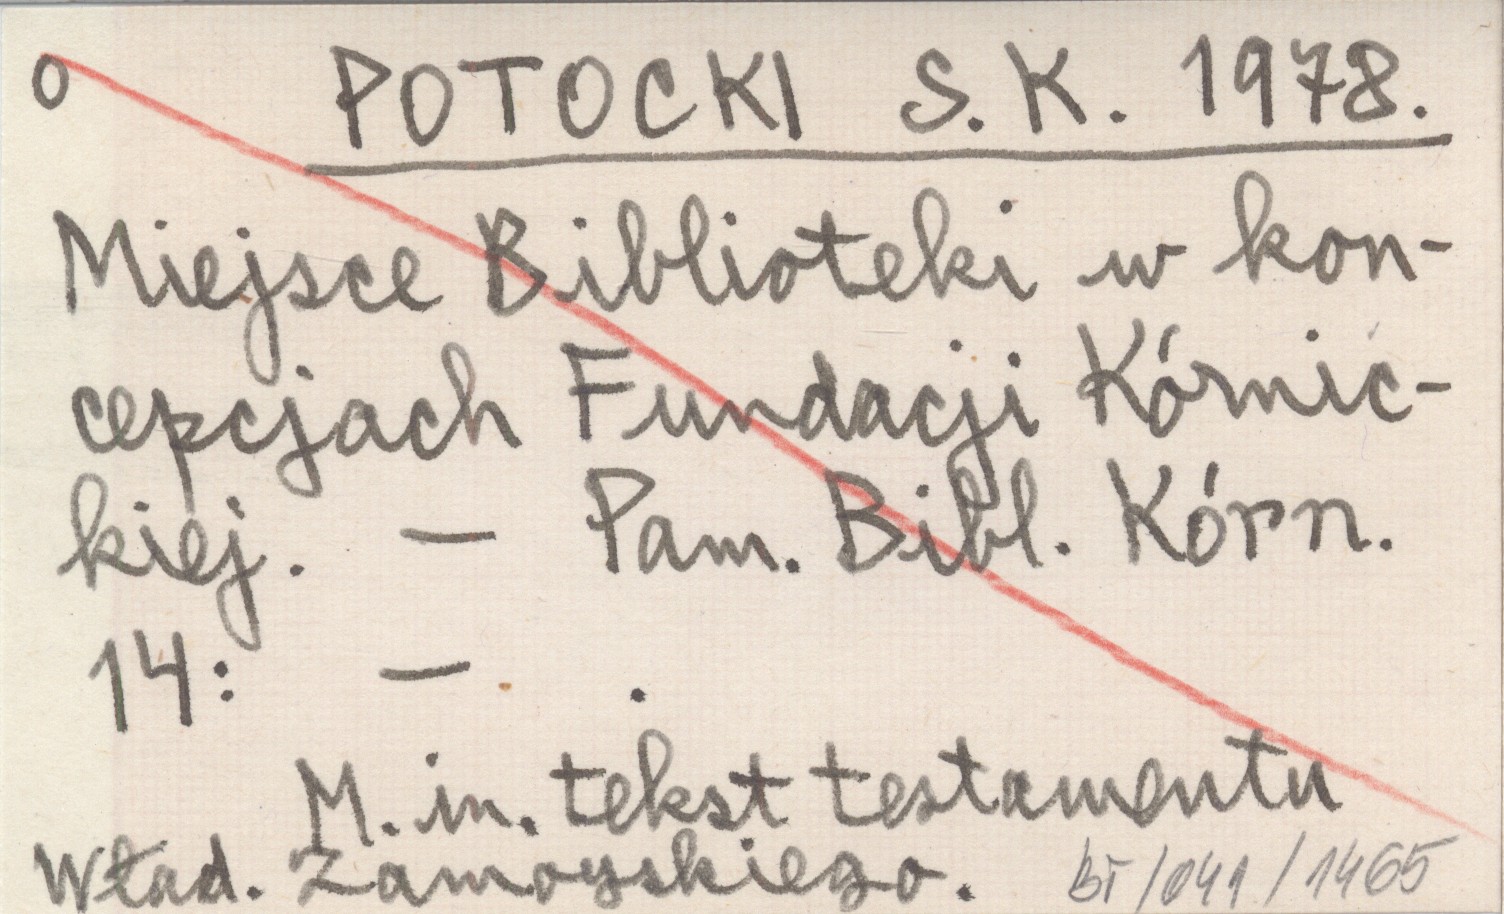 o POTOCKI S.K. 1978.
Miejsce Biblioteki w kon-
cepcjach Fundacji Kórnic-
kiej. — Pam. Bibl. Kórn.
14: — .
M. in. tekst testamentu
Wład. Zamoyskiego. bł/041/1465